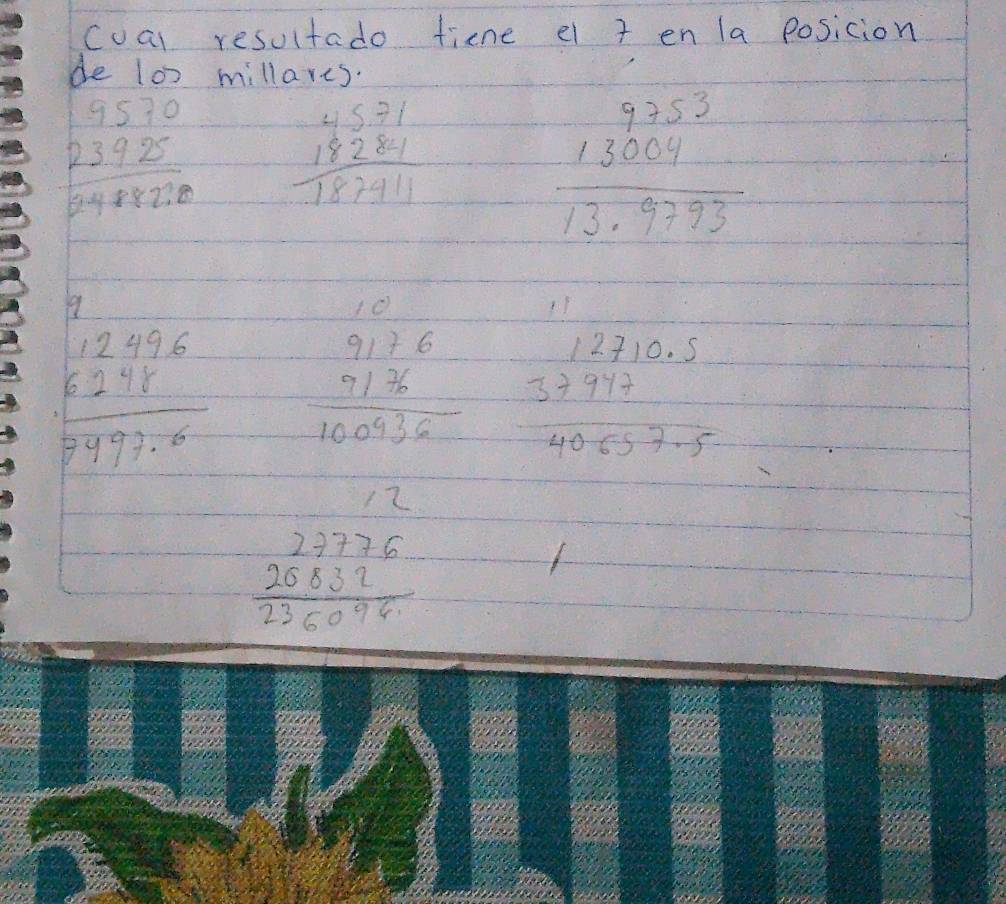 Cual resultado tiene el 7 en la Posicion
de los millares.
9570 4571 9753
23925 18284 13004
187411 13.9793
9 10 11
12496 9176 12710.5
6248 9176 37947
7497.6 100936 40657.5
12
27776
20832
236096.